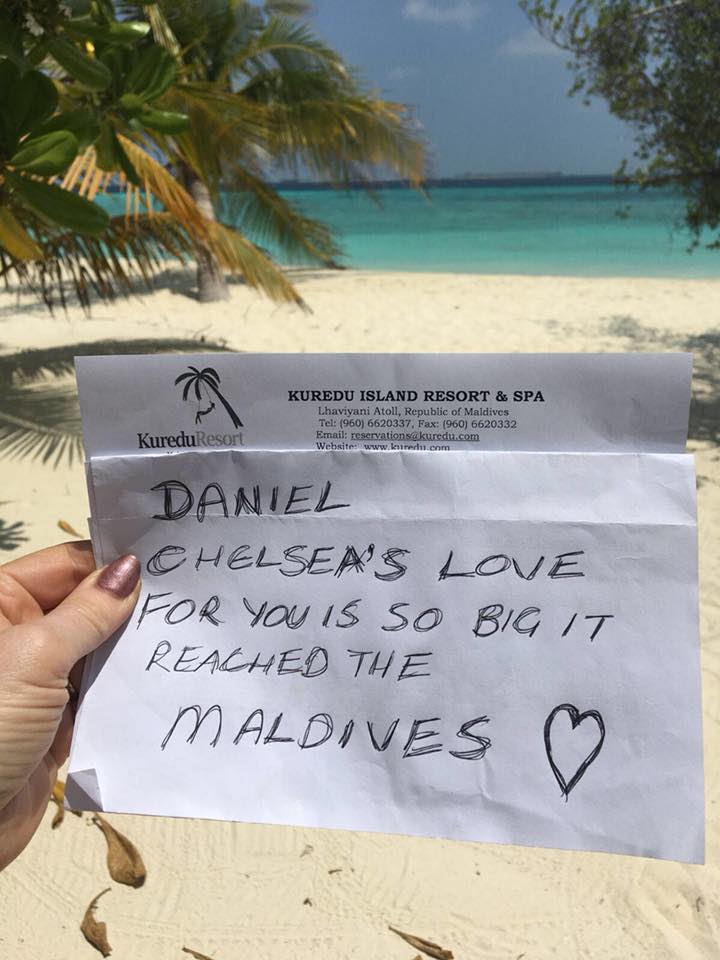 KUREDU ISLAND RESORT & SPA
Lhaviyani Atoll, Republic of Maldives
Tel: (960) 6620337, Fax: (960) 6620332
Email: reservations@kuredu.com
Website: www.kuredu.com
KureduResort
DANIEL
CHELSEA'S LOVE
FOR YOU IS SO BIG IT
REACHED THE
MALDIVES